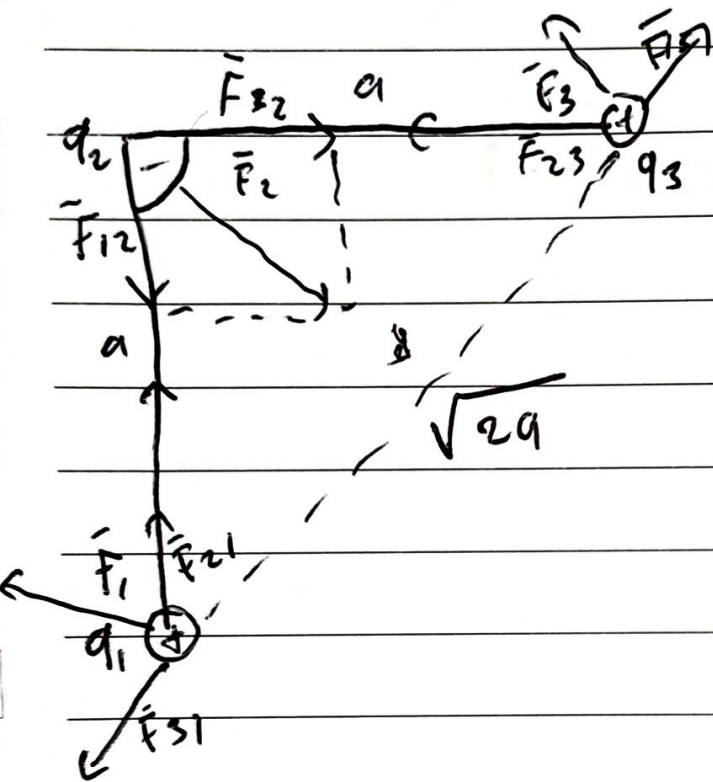 F̄32 a F̄3 F̄13
q2 F̄2 F̄23 q3
F̄12
a
√2a
F̄1 F̄21
q1 +
F̄31